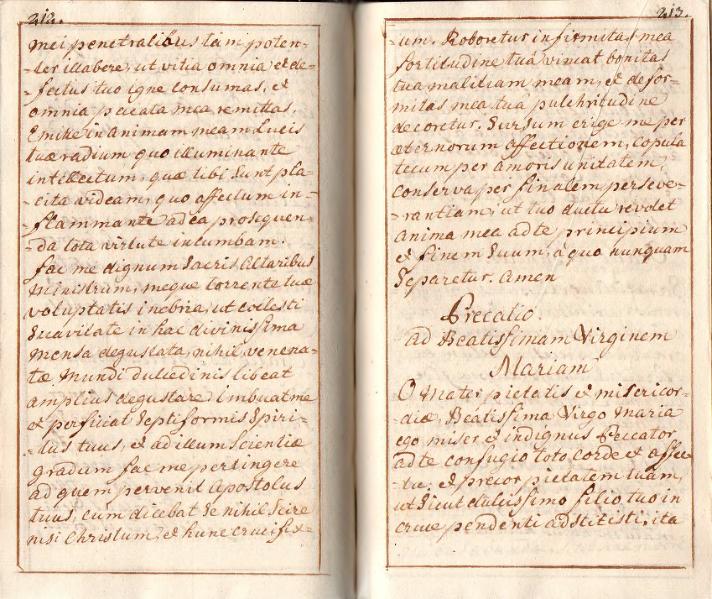 212.
mei penetralibus tam poten-
-ter illabere, ut vitia omnia, et de-
-fectus tuo igne consumas, et
omnia peccata mea remittas.
Emitte in animam meam Lucis
tuæ radium quo illuminante
intellectum, quæ tibi sunt pla-
-cita videam, quo affectum in-
-flammante ad ea prosequen-
-da tota virtute intumbam.
fac me dignum Sacris Altaribus
Ministrum, meque torrente tuæ
voluptatis inebria, ut coelesti
Suavitate in hac divinissima
mensa degustata, nihil venena-
tæ Mundi dulcedinis libeat
amplius degustare. Imbuat me
et perficiat Septiformis Spiri-
-tus tuus, et ad illum Scientiæ
gradum fac me pertingere
ad quem pervenit Apostolus
tuus, cum dicebat Se nihil Scire
nisi Christum, et hunc crucifix-
213.
-um. Roboretur infirmitas mea
fortitudine tua vincat bonitas
tua malitiam meam, et defor-
mitas mea tua pulchritudine
decoretur. Sursum erige me per
æternorum affectionem, copula
tecum per amoris unitatem,
conserva per finalem perseve-
-rantiam, ut tuo ductu revolet
anima mea ad te principium
et finem Suum, à quo nunquam
Separetur. Amen
Precatio.
ad Beatissimam Virginem
Mariam
O Mater pietatis et misericor-
diæ, Beatissima Virgo Maria
ego miser et indignus Peccator
ad te confugio toto corde et affec-
-tu. et precor pietatem tuam,
ut Sicut dulcissimo filio tuo in
cruce pendenti adstitisti, ita